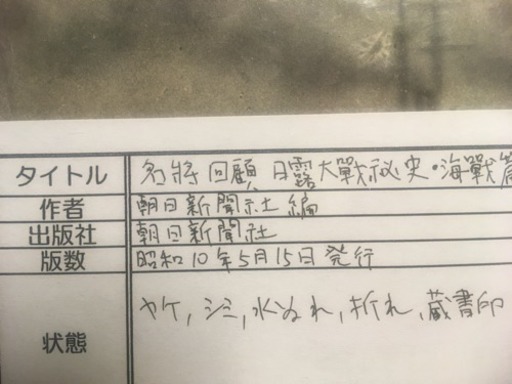 タイトル 名将回顧 日露大戦秘史・海戦篇
作者 朝日新聞社編
出版社 朝日新聞社
版数 昭和10年5月15日発行
状態 ヤケ,シミ,水ぬれ,折れ,蔵書印